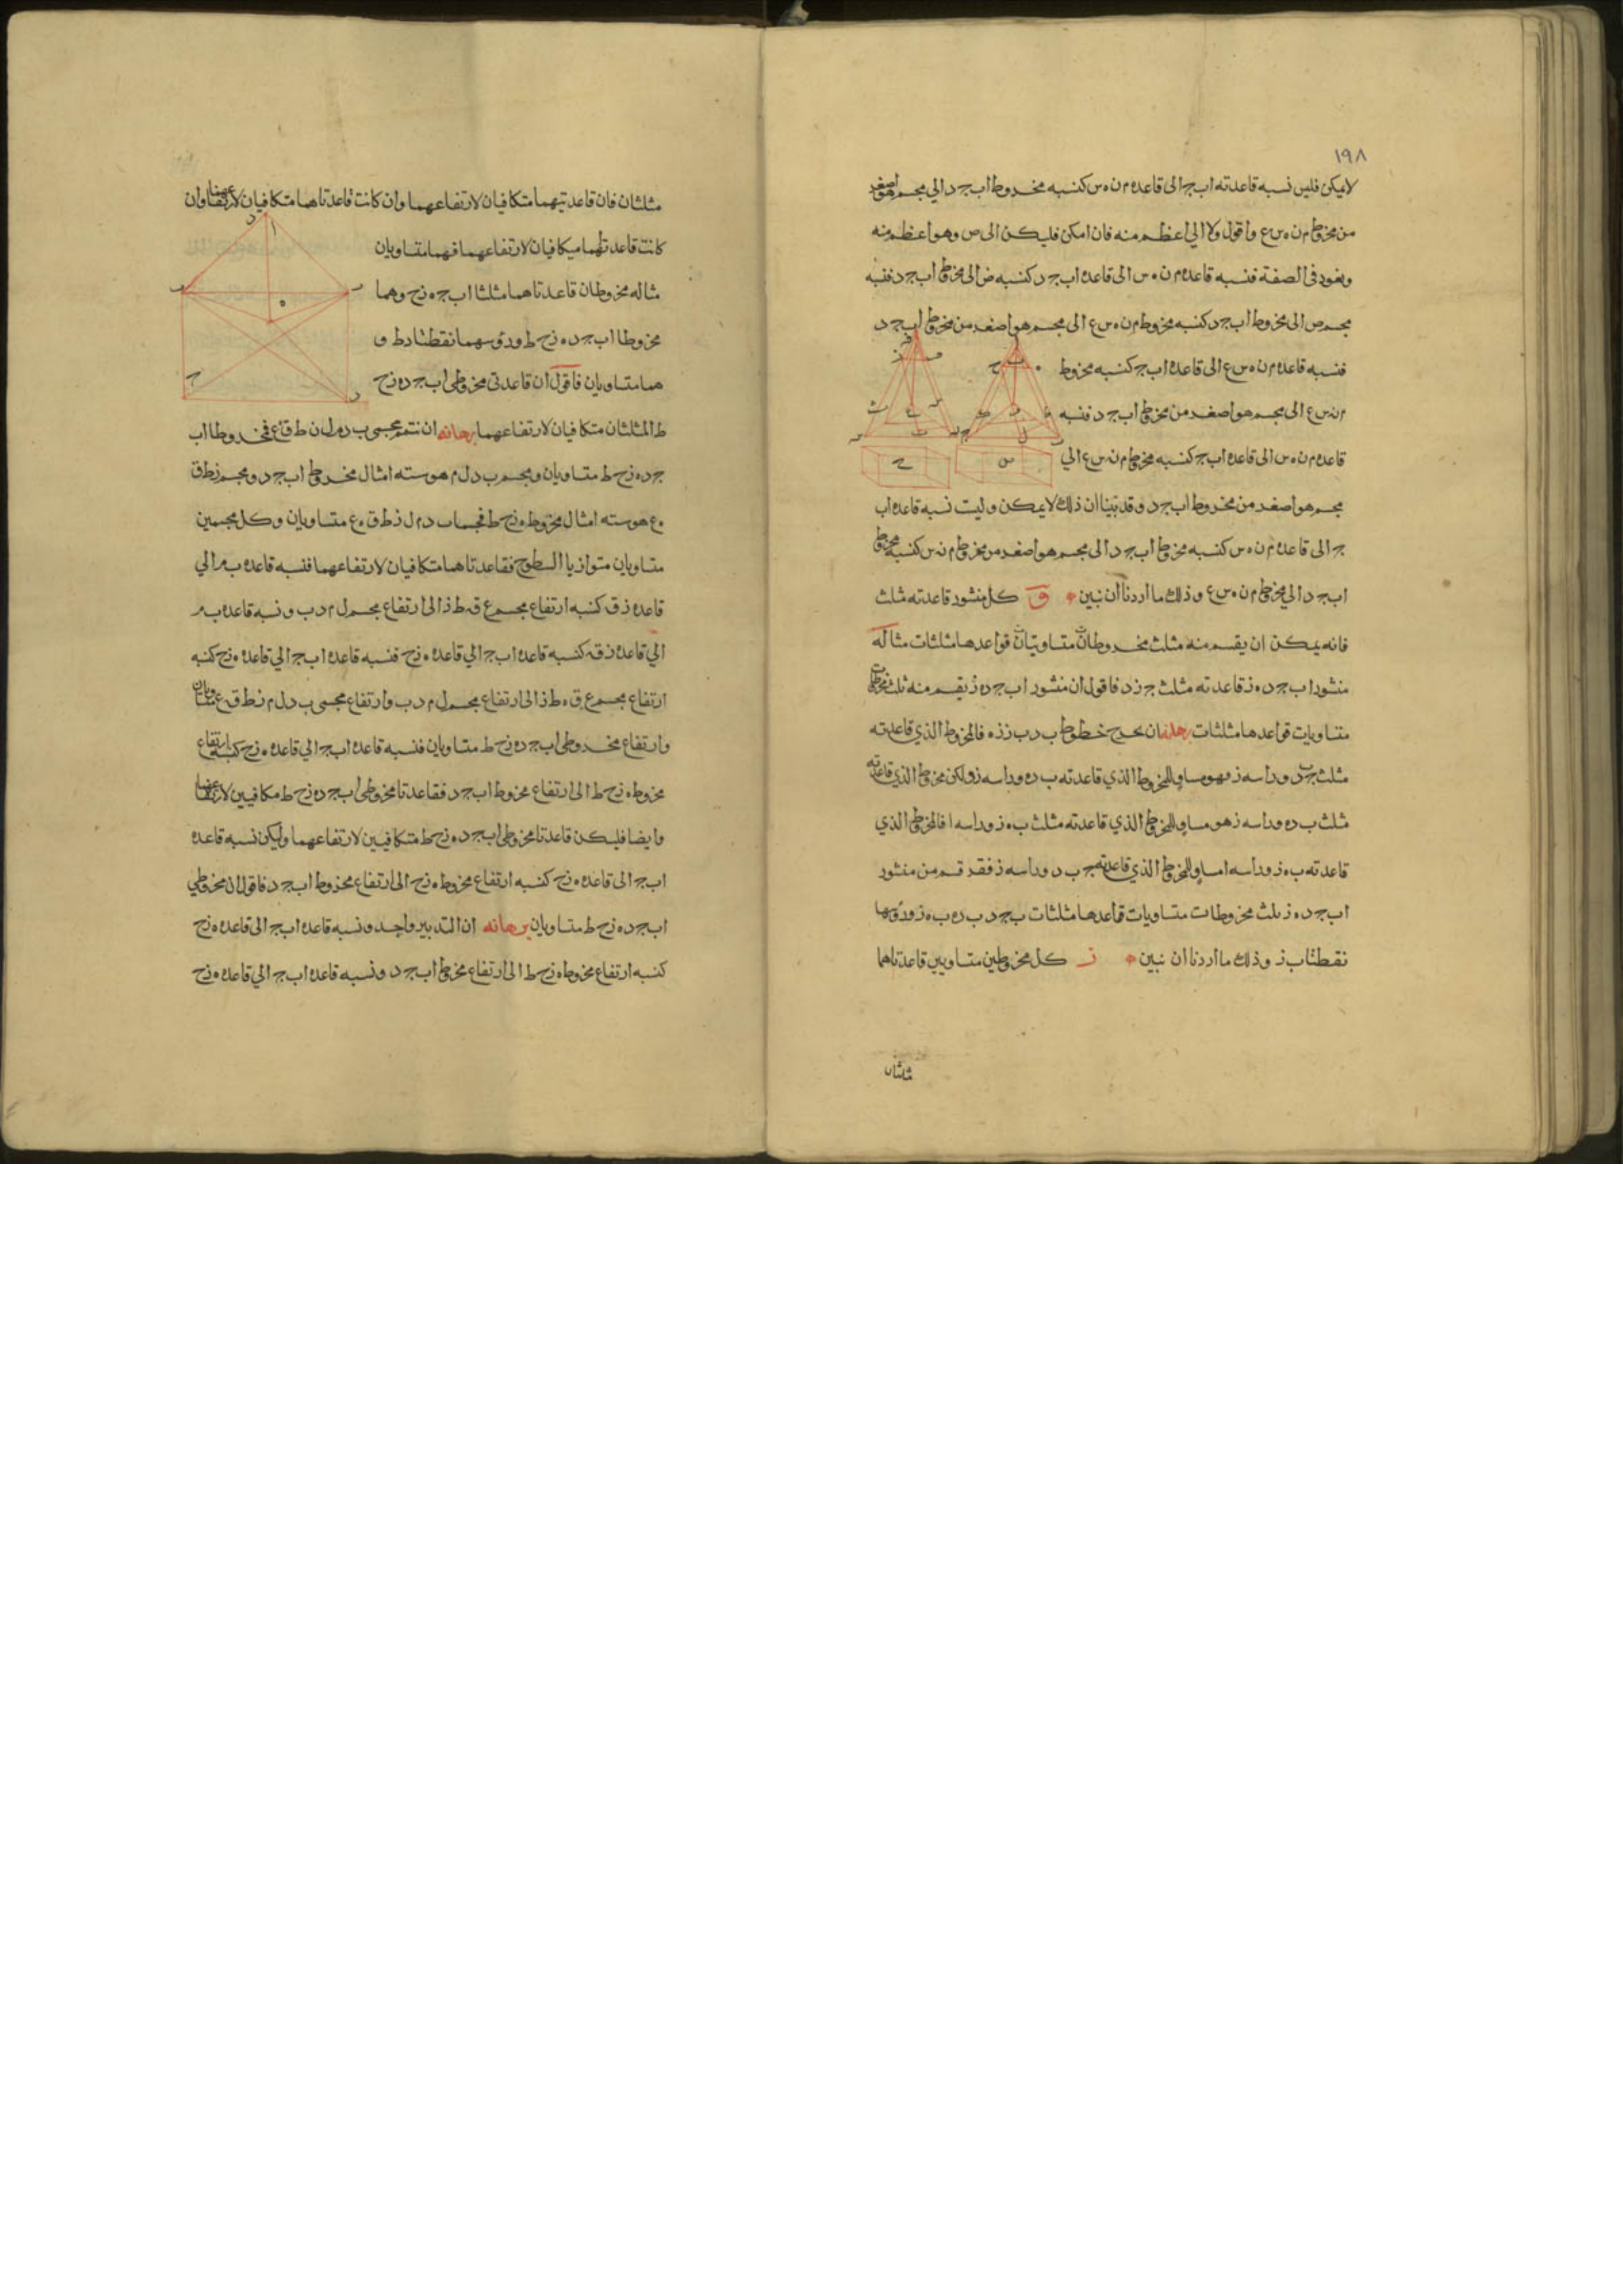 ١٩٨
لا يمكن فليس نسبه قاعدته اب ج الى قاعده م ن ه س كنسبه مخروط اب ج د الي مجسم هو اصغر
من مخروط م ن ه س ع واقول ولا الي اعظم منه فان امكن فليكن الى ص وهو اعظم منه
ويعود فى الصفة فنسبه قاعده م ن ه س الى قاعده اب ج د كنسبه ض الى مخروط اب ج د فنسبه
مجسم ص الى مخروط اب ج د كنسبه مخروط م ن ه س ع الى مجسم هو اصغر من مخروط اب ج د
فنسبه قاعده م ن ه س ع الى قاعده اب ج كنسبه مخروط
م ن س ع الى مجسم هو اصغر من مخروط اب ج د فنسبه
قاعده م ن ه س الى قاعده اب ج كنسبه مخروط م ن س ع الي
مجسم هو اصغر من مخروط اب ج د وقد بيّنا ان ذلك لا يمكن وليست نسبه قاعده اب
ج الى قاعده م ن ه س كنسبه مخروط اب ج د الى مجسم هو اصغر من مخروط م ن س كنسبه مخروط
اب ج د الي مخروط م ن ه س ع وذلك ما اردنا ان نبين و كل منشور قاعدته مثلث
فانه يمكن ان يقسم منه مثلث مخروطات متساويات قواعدها مثلثات مثاله
منشور اب ج د ه ز قاعدته مثلث ج ز د فاقول ان منشور اب ج د ه ز يقسم منه ثلث مخروطات
متساويات قواعدها مثلثات برهانه ان نخرج خطوط ب د ب ز ز ه فالمخروط الذي قاعدته
مثلث ج ب د وراسه ز فهو مساو للمخروط الذي قاعدته ب د ه وراسه ز ولكن مخروط الذي قاعدته
مثلث ب د ه وراسه ز هو مساو للمخروط الذي قاعدته مثلث ب ه ز وراسه ا فالمخروط الذي
قاعدته ب ه ز وراسه ا مساو للمخروط الذي قاعدته ج ب د وراسه ز فقد قسم من منشور
اب ج د ه ز ثلث مخروطات متساويات قاعدها مثلثات ب ج د ب د ه ب ه ز ورؤسها
نقطتا ب ز وذلك ما اردنا ان نبين ز كل مخروطين متساويين قاعدتاهما
مثلثان
مثلثان فان قاعدتيهما متكافيان لارتفاعهما وان كانت قاعدتاهما متكافيان لارتفاعهما وان
كانت قاعدتهما متكافيان لارتفاعهما فهما متساويان
مثاله مخروطان قاعدتاهما مثلثا اب ج ه ز ح وهما
مخروطا اب ج د ه ز ح ط ورؤسهما نقطتا د ط و
هما متساويان فاقول ان قاعدتى مخروطى اب ج د ه ز ح
ط المثلثان متكافيان لارتفاعهما برهانه ان نتمم مجسمى ب د م ل ن ط ق ع فمخروطا اب
ج د ه ز ح ط متساويان ومجسم ب د ل م هو سته امثال مخروط اب ج د ومجسم ز ط ق
ه ع هو سته امثال مخروط ه ز ح ط فمجسمات د م ل ز ط ق ه ع متساويان وكل مجسمين
متساويان متوازيا السطوح فقاعدتاهما متكافيان لارتفاعهما فنسبه قاعده ب م الي
قاعده ز ق كنسبه ارتفاع مجسم ع ق ط ز الى ارتفاع مجسم ل م د ب ونسبه قاعده ب م
الي قاعده ز ق كنسبه قاعده اب ج الي قاعده ه ز ح فنسبه قاعده اب ج الي قاعده ه ز ح كنسبه
ارتفاع مجسم ع ق ه ط ز الى ارتفاع مجسم ل م د ب وارتفاع مجسمى ب د ل م ز ط ق ه ع متساويان
وارتفاع مخروطى اب ج د ه ز ح ط متساويان فنسبه قاعده اب ج الي قاعده ه ز ح كنسبه ارتفاع
مخروط ه ز ح ط الى ارتفاع مخروط اب ج د فقاعدتا مخروطى اب ج د ه ز ح ط مكافيين لارتفاعهما
وايضا فليكن قاعدتا مخروطى اب ج د ه ز ح ط متكافيين لارتفاعهما وليكن نسبه قاعده
اب ج الى قاعده ه ز ح كنسبه ارتفاع مخروط ه ز ح الى ارتفاع مخروط اب ج د فاقول ان مخروطي
اب ج د ه ز ح ط متساويان برهانه ان التدبير واحد ونسبه قاعده اب ج الى قاعده ه ز ح
كنسبه ارتفاع مخروط ه ز ح ط الى ارتفاع مخروط اب ج د ونسبه قاعده اب ج الي قاعده ه ز ح